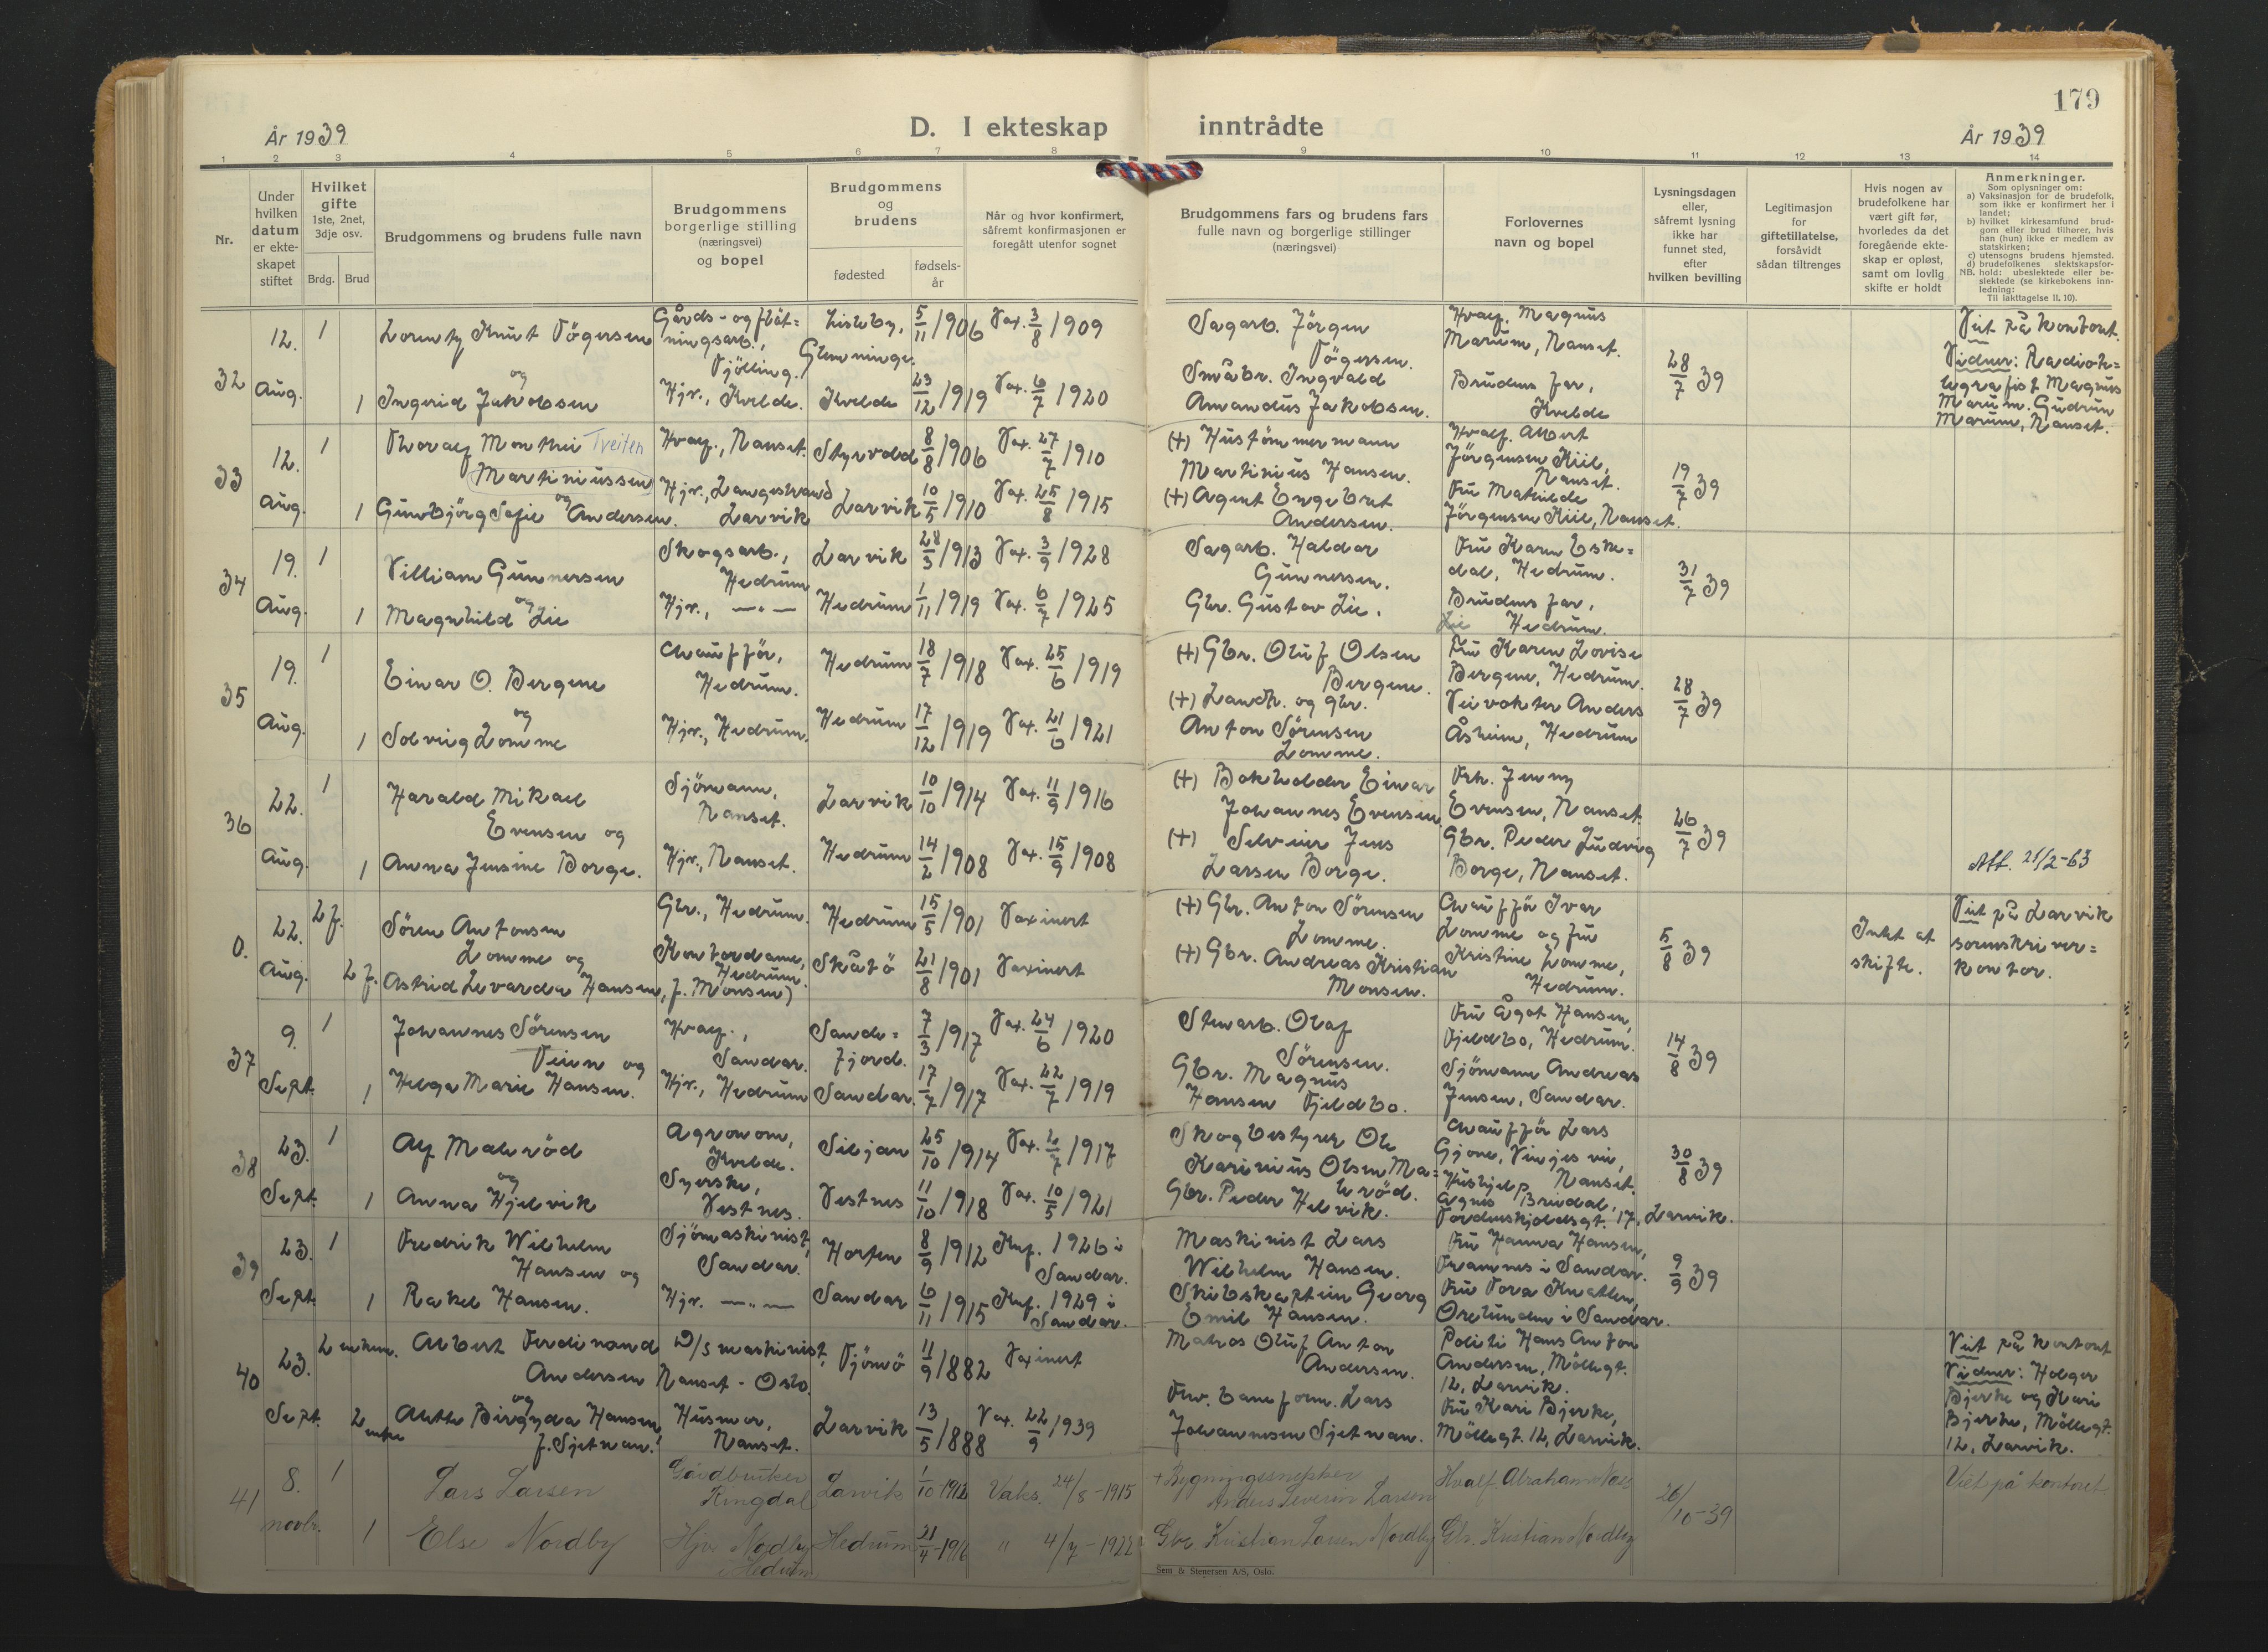 179
År 1939
D. I ekteskap inntrådte
År 1939
1 2 3 4 5 6 7 8 9 10 11 12 13 14
Nr.
Under
hvilken
datum
er ekte-
skapet
stiftet
Hvilket
gifte
1ste, 2net,
3dje osv.
Brdg. Brud
Brudgommens og brudens fulle navn
Brudgommens
borgerlige stilling
(næringsvei)
og bopel
Brudgommens
og
brudens
fødested
fødsels-
år
Når og hvor konfirmert,
såfremt konfirmasjonen er
foregått utenfor sognet
Brudgommens fars og brudens fars
fulle navn og borgerlige stillinger
(næringsvei)
Forlovernes
navn og bopel
Lysningsdagen
eller,
såfremt lysning
ikke har
funnet sted,
efter
hvilken bevilling
Legitimasjon
for
giftetillatelse,
forsåvidt
sådan tiltrenges
Hvis nogen av
brudefolkene har
vært gift før,
hvorledes da det
foregående ekte-
skap er opløst,
samt om lovlig
skifte er holdt
Anmerkninger.
Som oplysninger om:
a) Vaksinasjon for de brudefolk,
som ikke er konfirmert her i
landet;
b) hvilket kirkesamfund brud-
gom eller brud tilhører, hvis
han (hun) ikke er medlem av
statskirken;
c) utensogns brudens hjemsted.
d) brudefolkenes slektskapsfor-
NB. hold: ubeslektede eller be-
slektede (se kirkebokens inn-
ledning:
Til iakttagelse II, 10).
32
12.
Aug.
1
Lorentz Knut Tögersen
og
1
Ingerid Jakobsen
Gårds- og fløt=
ningsarb.,
Tjölling.
Hjv., Kvelde.
Lisleby,
Glemminge.
Kvelde
5/11 1906
23/12 1919
Vax. 3/8 1909
Vax. 6/7 1920
Sagarb. Jörgen
Tögersen.
Småbr. Ingvald
Amandus Jakobsen.
Hvalf. Magnus
Marum, Nanset.
Brudens far,
Kvelde
28/7 39
Viet på kontoret.
Vidner: Radiote=
legrafist Magnus
Marum. Gudrun
Marum, Nanset.
33
12.
Aug.
1
Thoralf Monthei Tveiten
Martiniussen
og
1
Gunbjörg Sofie Andersen.
Hvalf., Nanset.
Hjv., Langestrand
Larvik
Styrvold
Larvik
8/8 1906
10/5 1910
Vax. 27/7 1910
Vax. 25/8 1915
(+) Hustömmermann
Martinius Hansen.
(+) Agent Engebret
Andersen.
Hvalf. Albert
Jörgensen Kiil,
Nanset.
Fru Mathilde
Jörgensen Kiil, Nanset.
19/7 39
34
19.
Aug.
1
Villiam Gunnersen
og
1
Magnhild Lie
Skogsarb.,
Hedrum
Hjv., —"—
Larvik
Hedrum
28/3 1913
1/11 1919
Vax. 3/9 1928
Vax. 6/7 1925
Sagarb. Haldor
Gunnersen.
Gbr. Gustav Lie.
Fru Karen Eske=
dal, Hedrum.
Brudens far,
Lie Hedrum.
31/7 39
35
19.
Aug.
1
Einar O. Bergene
og
1
Solveig Lomme
Chaufför,
Hedrum.
Hjv., Hedrum.
Hedrum
Hedrum
18/7 1918
17/12 1919
Vax. 25/6 1919
Vax. 21/6 1921
(+) Gbr. Oluf Olsen
Bergene.
(+) Landh. og gbr.
Anton Sörensen
Lomme.
Fru Karen Lovise
Bergene, Hedrum.
Veivokter Anders
Åsheim, Hedrum
28/7 39
36
22.
Aug.
1
Harald Mikael
Evensen og
1
Anna Jensine Borge.
Sjömann,
Nanset.
Hjv., Nanset.
Larvik
Hedrum
10/10 1914
14/2 1908
Vax. 11/9 1916
Vax. 15/9 1908
(+) Bokholder Einar
Johannes Evensen
(+) Selveier Jens
Larsen Borge.
Frk. Jenny
Evensen, Nanset.
Gbr. Peder Ludvig
Borge, Nanset.
26/7 39
Att. 21/2-63
0.
22.
Aug.
2 f.
Sören Antonsen
Lomme og
2 f.
Astrid Levarda Hansen, f. Monsen)
Gbr., Hedrum.
Kontordame,
Hedrum.
Hedrum
Skåtö
15/5 1901
21/8 1901
Vaxinert
Vaxinert
(+) Gbr. Anton Sörensen
Lomme.
(+) Gbr. Andreas Kristian
Monsen.
Chaufför Ivar
Lomme og fru
Kristine Lomme,
Hedrum.
5/8 39
Intet at
skifte.
Viet på Larvik
sorenskriver=
kontor.
37
9.
Sept.
1
Johannes Sörensen
Veien og
1
Helga Marie Hansen.
Hvalf.,
Sandar.
Hjv., Hedrum
Sande=
fjord.
Sandar.
7/3 1917
17/7 1917
Vax. 24/6 1920
Vax. 22/7 1919
Stenarb. Olaf
Sörensen.
Gbr. Magnus
Hansen Fjeldbo.
Fru Ågot Hansen,
Fjeldbo, Hedrum.
Sjömann Andreas
Jensen, Sandar.
14/8 39
38
23.
Sept.
1
Alf Maleröd
og
1
Anna Hjelvik
Agronom,
Kvelde.
Syerske,
Vestnes.
Siljan
Vestnes
25/10 1914
11/10 1918
Vax. 2/7 1917
Vax. 10/5 1921
Skogbestyrer Ole
Karinius Olsen Ma=
leröd.
Gbr. Peder Helvik.
Chaufför Lars
Gjone, Vinjes vei,
Nanset.
Hushjelp
Agnes Brudal,
Tordenskjoldsgt. 17, Larvik.
30/8 39
39
23.
Sept.
1
Fredrik Wilhelm
Hansen og
1
Rakel Hansen.
Sjömaskinist,
Sandar.
Hjv. —"—
Horten
Sandar
8/9 1912
6/11 1915
Knf. 1926 i
Sandar.
Knf. 1929 i
Sandar.
Maskinist Lars
Wilhelm Hansen.
Skibskaptein Georg
Emil Hansen.
Fru Hanna Hansen,
Framnes i Sandar.
Fru Tora Knatten,
Orelunden i Sandar.
9/9 39
40
23.
Sept.
2 enkem.
Albert Ferdinand
Andersen
og
2
enke
Alette Birgyda Hansen,
f. Sjetnan.
D/s maskinist,
Nanset - Oslo.
Husmor,
Nanset.
Tjömö
Larvik
11/9 1882
13/5 1888
Vaxinert
Vax. 22/9 1939
Matros Oluf Anton
Andersen.
Frv. baneform. Lars
Johannesen Sjetnan.
Politi Hans Anton
Andersen, Möllegt.
12, Larvik.
Fru Kari Bjerke,
Möllegt. 12, Larvik.
Viet på kontoret
Vidner: Holger
Bjerke og Kari
Bjerke, Möllegt.
12, Larvik.
41
8.
novbr.
1
Lars Larsen
1
Else Nordby
Gårdbruker
Ringdal
Hjv. Nordby
i Hedrum
Larvik
Hedrum
1/10-1912
21/4-1916
Vaks. 24/8-1915
" 4/7-1922
+ Bygningssnekker
Anders Severin Larsen
Gbr. Kristian Larsen Nordby
Hvalf. Abraham Næss
Gbr. Kristian Nordby
26/10-39
Viet på kontoret
Sem & Stenersen A/S, Oslo.